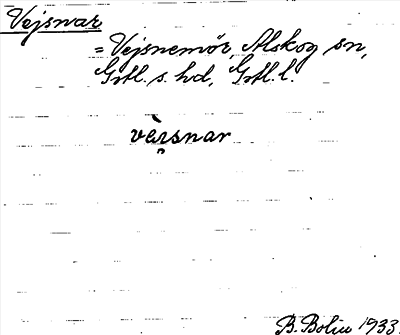 Vejsnar
= Vejsnemör, Alskog sn,
Gotl. s. hd, Gotl. l.
vèi̯snar
B. Bolin 1933.